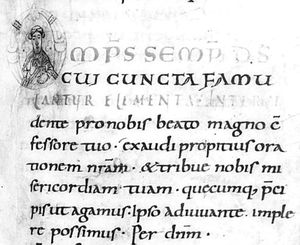 OMPS SEMP DS
CUI CUNCTA FAMU
LANTUR ELEMENTA INTER
dente pro nobis beato magno c̄
fessore tuo · exaudi propitius ora
tionem nr̄am · & tribue nobis mi
sericordiam tuam · quecumq; p̄ci
pis ut agamus · Ipso adiuvante imple
re possimus · Per dn̄m ·